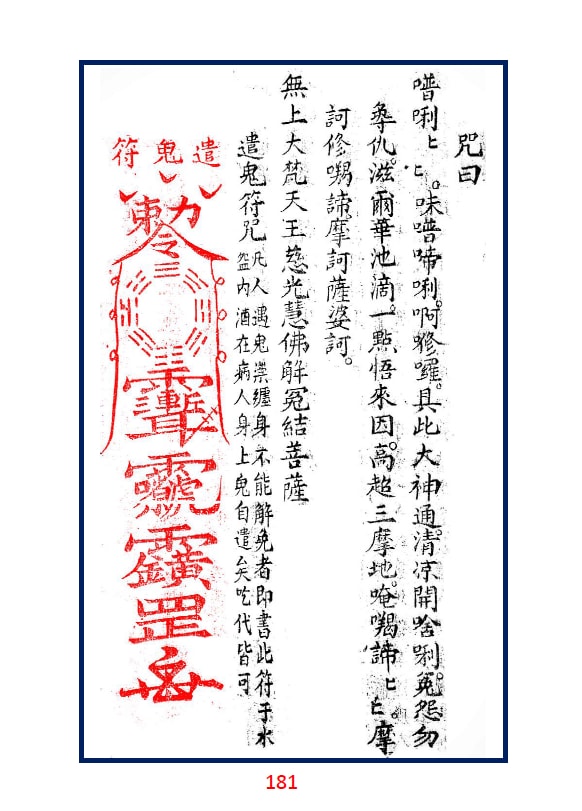 咒曰
噆唎ヒヒ。味噆啼唎。啊修囉。具此大神通。清凉開啥唎。冤怨勿
尋仇。滋爾華池滴。一點悟來因。高超三摩地。唵𡃤諦ヒヒ。摩
訶修𡃤諦。摩訶薩婆訶。
無上大梵天王慈光慧佛解冤結菩薩
遣鬼符咒
凡人遇鬼祟纏身不能解免者即書此符于水
盌內洒在病人身上鬼自遣矣吃代皆可
遣鬼符
勅令
罡
181